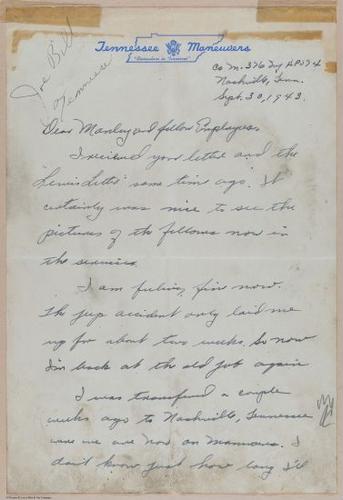 Joe Bill
Tennessee
Tennessee Maneuvers
"Somewhere in Tennessee"
Co M. 376 Inf APO 94
Nashville, Tenn.
Sept. 30, 1943.
Dear Manley and fellow Employees
I received your letter and the
"Lewis Letter" some time ago. It
certainly was nice to see the
pictures of the fellows now in
the services.
I am feeling fine now.
The jeep accident only laid me
up for about two weeks. So now
I'm back at the old job again
I was transfered a couple
weeks ago to Nashville, Tennessee
were we are now on maneuvers. I
don't know just how long I'll